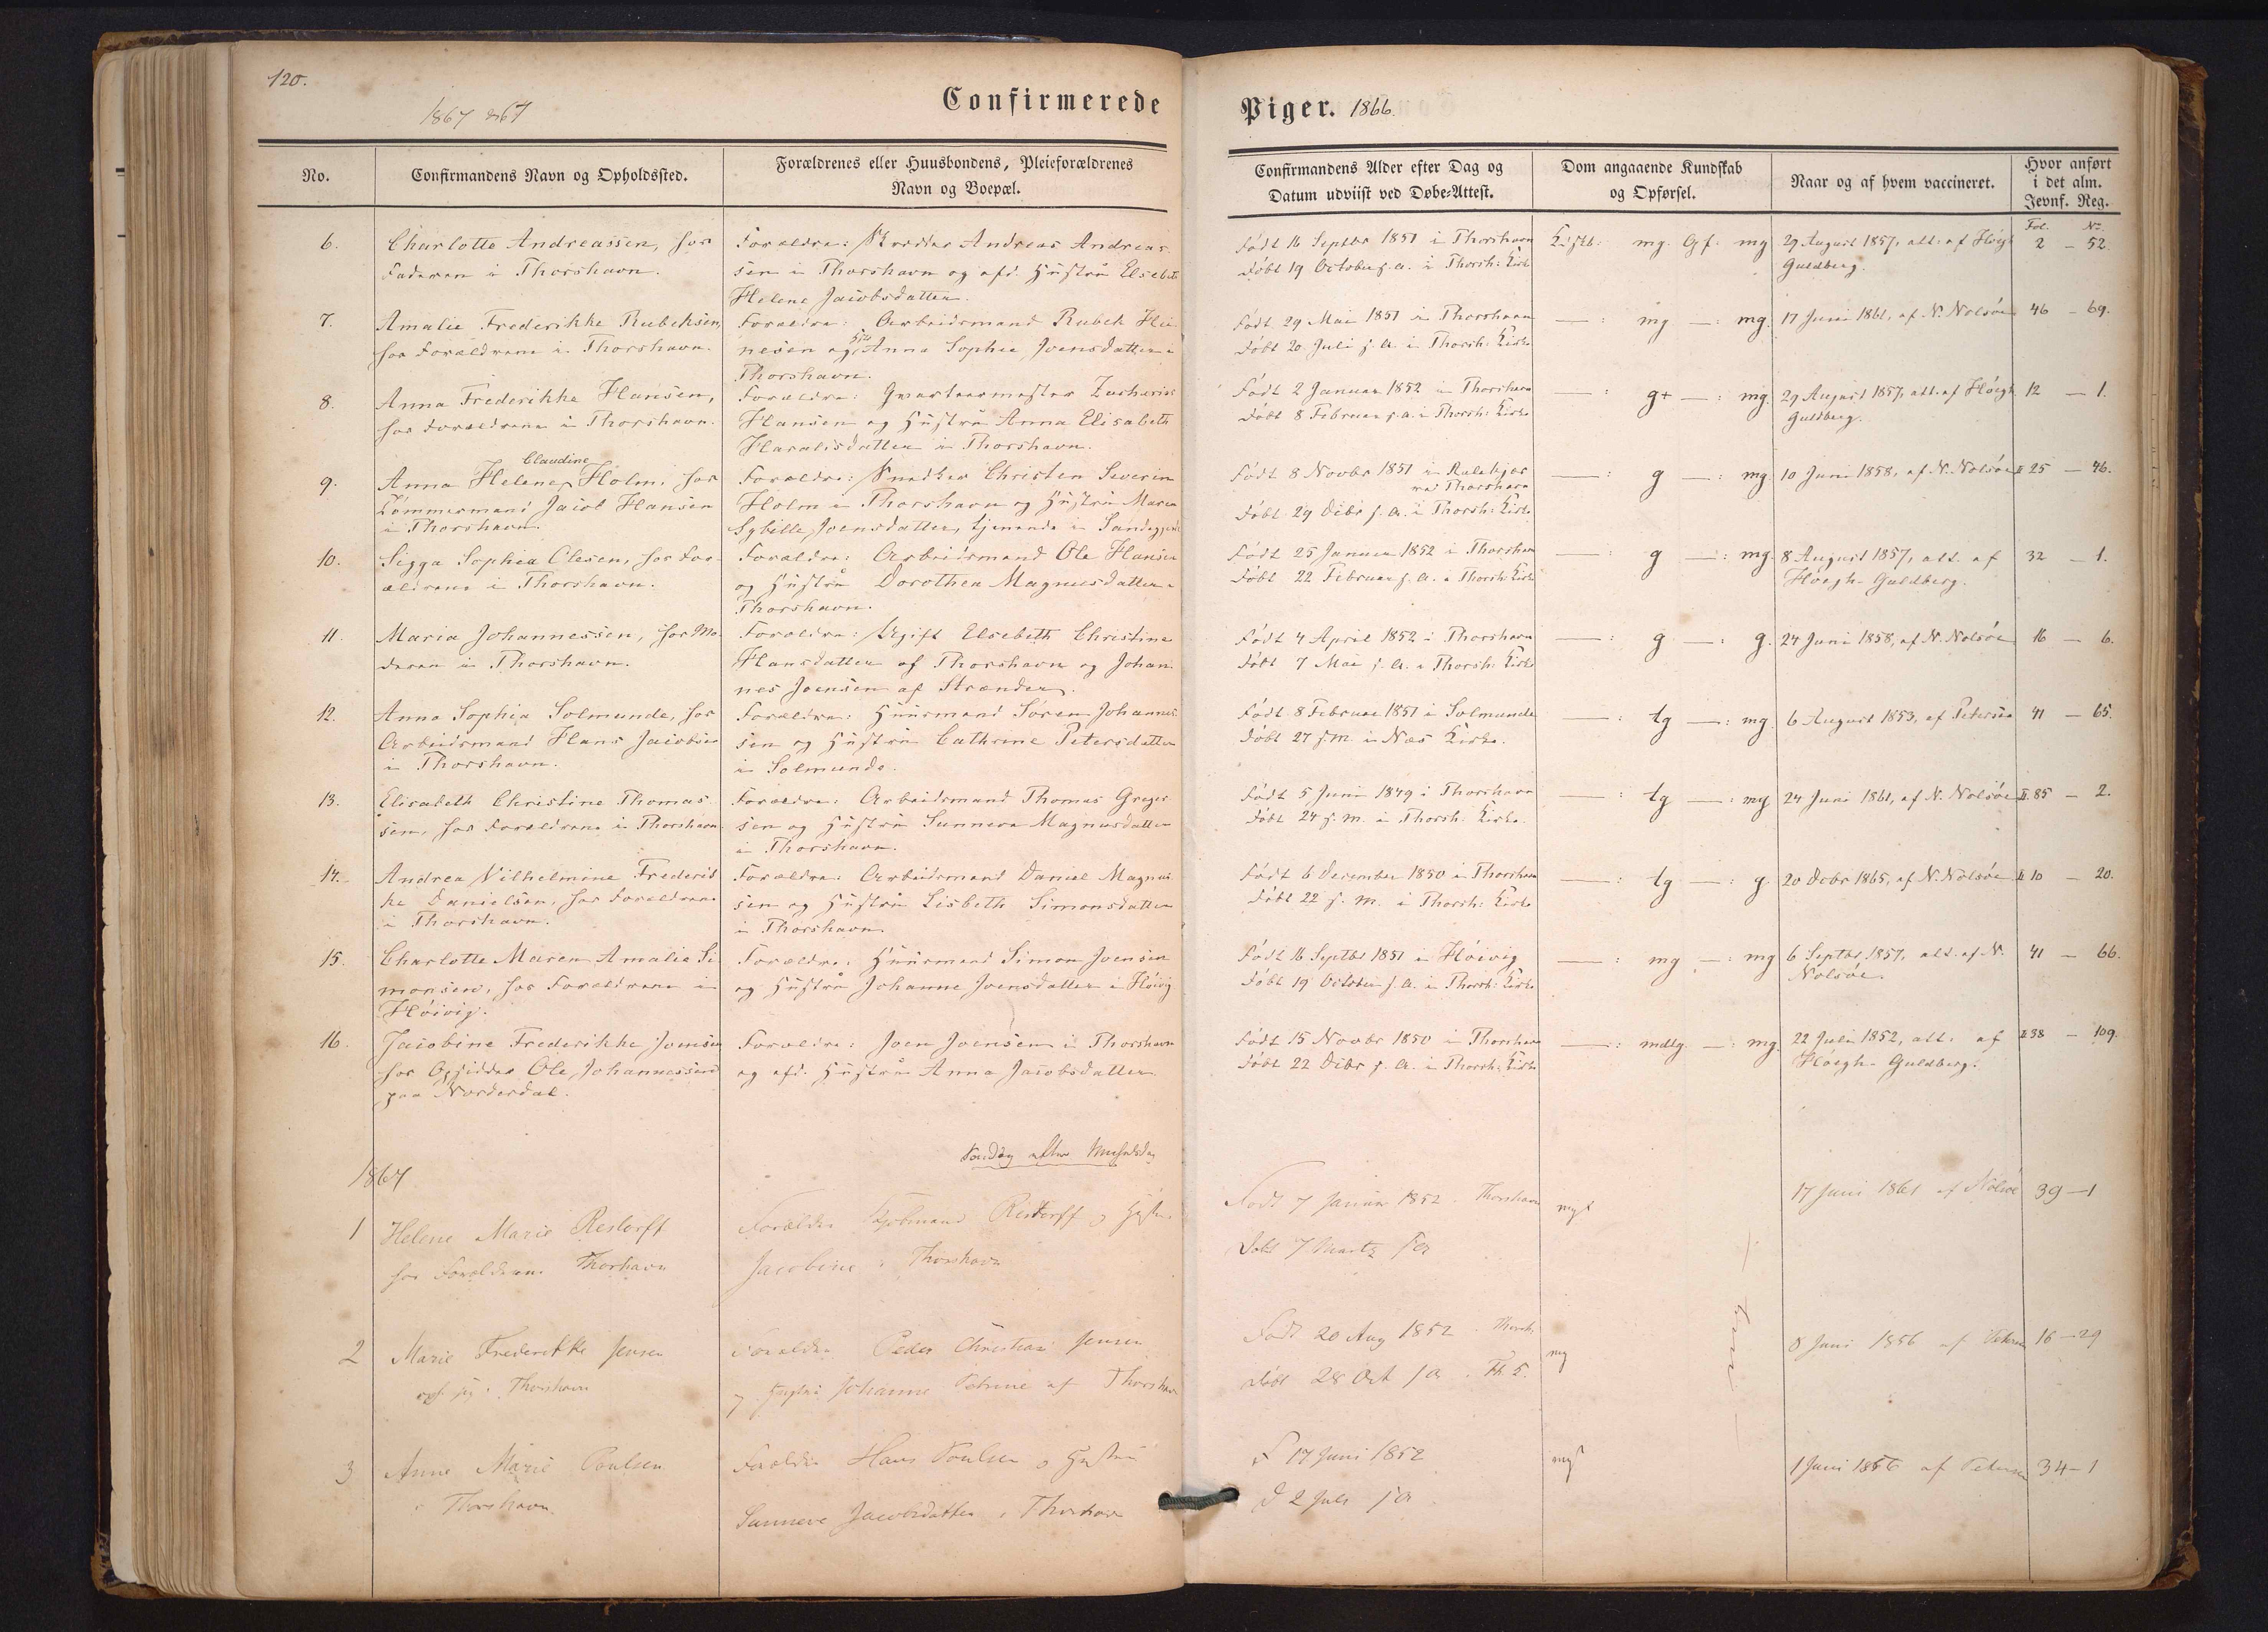 120.
1867
Confirmerede
Piger. 1866.
No.
Confirmandens Navn og Opholdssted.
Forældrenes eller Huusbondens, Pleieforældrenes
Navn og Boepæl.
Confirmandens Alder efter Dag og
Datum udviist ved Døbe-Attest.
Dom angaaende Kundskab
og Opførsel.
Naar og af hvem vaccineret.
Hvor anført
i det alm.
Jevnf. Reg.
Fol. No.
6.
Charlotte Andreassen, hos
Faderen i Thorshavn.
Forældre: Skrædder Andreas Andreas-
sen i Thorshavn og afd. Hustru Elsebeth
Helene Jacobsdatter.
Født 16 Septbr 1851 i Thorshavn
Døbt 19 October s. A. i Thorsh: Kirke
Kdskb: mg. Opf. mg
29 August 1857, att. af Høegh
Guldberg.
2 – 52.
7.
Amalie Frederikke Rubeksen,
hos Forældrene i Thorshavn.
Forældre: Arbeidsmand Rubek Hei-
nesen og Hstr Anna Sophie Joensdatter i
Thorshavn.
Født 29 Mai 1851 i Thorshavn
Døbt 20 Juli s. A. i Thorsh: Kirke
— : mg — : mg.
17 Juni 1861, af N. Nolsøe
46 – 69.
8.
Anna Frederikke Hansen,
hos Forældrene i Thorshavn.
Forældre: Qvarteermester Zacharias
Hansen og Hustru Anna Elisabeth
Haraldsdatter i Thorshavn.
Født 2 Januar 1852 i Thorshavn
Døbt 8 Februar s. A. i Thorsh: Kirke
— : g+ — : mg.
29 August 1857, att. af Høegh
Guldberg.
12 – 1.
9.
Claudine
Anna Helene Holm, hos
Tømmermand Jacob Hansen
i Thorshavn.
Forældre: Snedker Christen Severin
Holm i Thorshavn og Hustru Maren
Sybille Joensdatter, tjenende i
Født 8 Novbr 1851 i
ved Thorshavn
Døbt 29 Decbr s. A. i Thorsh: Kirke
— : g — : mg.
10 Juni 1858, af N. Nolsøe
II 25 – 46.
10.
Sigga Sophia Olesen, hos For-
ældrene i Thorshavn.
Forældre: Arbeidsmand Ole Hansen
og Hustru Dorothea Magnusdatter i
Thorshavn.
Født 25 Januar 1852 i Thorshavn
Døbt 22 Februar s. A. i Thorsh: Kirke
— : g — : mg.
8 August 1857, att. af
Høegh-Guldberg.
32 – 1.
11.
Maria Johannessen, hos Mo-
deren i Thorshavn.
Forældre: Ugift Elsebeth Christine
Hansdatter af Thorshavn og Johan-
nes Joensen af Strænder.
Født 4 April 1852 i Thorshavn
Døbt 7 Mai s. A. i Thorsh: Kirke
— : g — : g.
24 Juni 1858, af N. Nolsøe
16 – 6.
12.
Anna Sophia Solmunde, hos
Arbeidsmand Hans Jacobsen
i Thorshavn.
Forældre: Huusmand Søren Johannes-
sen og Hustru Cathrine Petersdatter
i Solmunde.
Født 8 Februar 1851 i Solmunde
Døbt 27 s. M. i Næs Kirke.
— : tg — : mg.
6 August 1853, af Petersen
41 – 65.
13.
Elisabeth Christine Thomas-
sen, hos Forældrene i Thorshavn.
Forældre: Arbeidsmand Thomas Greger-
sen og Hustru Sunneva Magnusdatter
i Thorshavn.
Født 5 Juni 1849 i Thorshavn
Døbt 24 s. M. i Thorsh. Kirke.
— : tg — : mg
24 Juni 1861, af N. Nolsøe
II 85 – 2.
14.
Andrea Vilhelmine Frederik-
ke Danielsen, hos Forældrene
i Thorshavn.
Forældre: Arbeidsmand Daniel Magnus-
sen og Hustru Lisbeth Simonsdatter
i Thorshavn.
Født 6 December 1850 i Thorshavn
Døbt 22 s. M. i Thorsh: Kirke
— : tg — : g.
20 Decbr 1865, af N. Nolsøe
II 10 – 20.
15.
Charlotte Maren Amalie Si-
monsen, hos Forældrene i
Høivig.
Forældre: Huusmand Simon Joensen
og Hustru Johanne Joensdatter i Høivig
Født 16 Septbr 1851 i Høivig
Døbt 19 October s. A. i Thorsh: Kirke
— : mg — : mg
6 Septbr 1857, att. af N.
Nolsøe.
41 – 66.
16.
Jacobine Frederikke Joensen
hos Opsidder Ole Johannessen
paa Norderdal.
Forældre: Joen Joensen i Thorshavn
og afd. Hustru Anna Jacobsdatter
Født 15 Novbr 1850 i Thorshavn
Døbt 22 Decbr s. A. i Thorsh: Kirke
— : mdlg — : mg.
22 Juli 1852, att. af
Høegh-Guldberg.
II 38 – 109.
Søndag efter
1867
1
Helene Marie Restorff
hos Forældrene Thorshavn
Forældre Kjøbmand Restorff og Hustru
Jacobine i Thorshavn
Født 7 Januar 1852 Thorshavn
Døbt 7 Marts s a
mg
17 Juni 1861 af Nolsøe
39 – 1
2
Marie Frederikke Jensen
Thorshavn
Forældre Peder Christian Jensen
og Hustru Johanne Petrine af Thorshavn
Født 20 Aug 1852 Thorsh
Døbt 28 Oct s a
mg
mg
8 Juni 1856 af Petersen
16 – 29
3
Anne Marie Poulsen
i Thorshavn
Forældre Hans Poulsen og Hustru
Sunneve Jacobsdatter i Thorshavn
F 17 Juni 1852
D 2 Juli s a
mg
1 Juni 1856 af Petersen
34 – 1